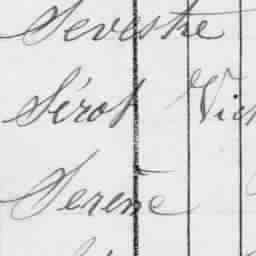 Sevestre
Sérot Vict
Serene